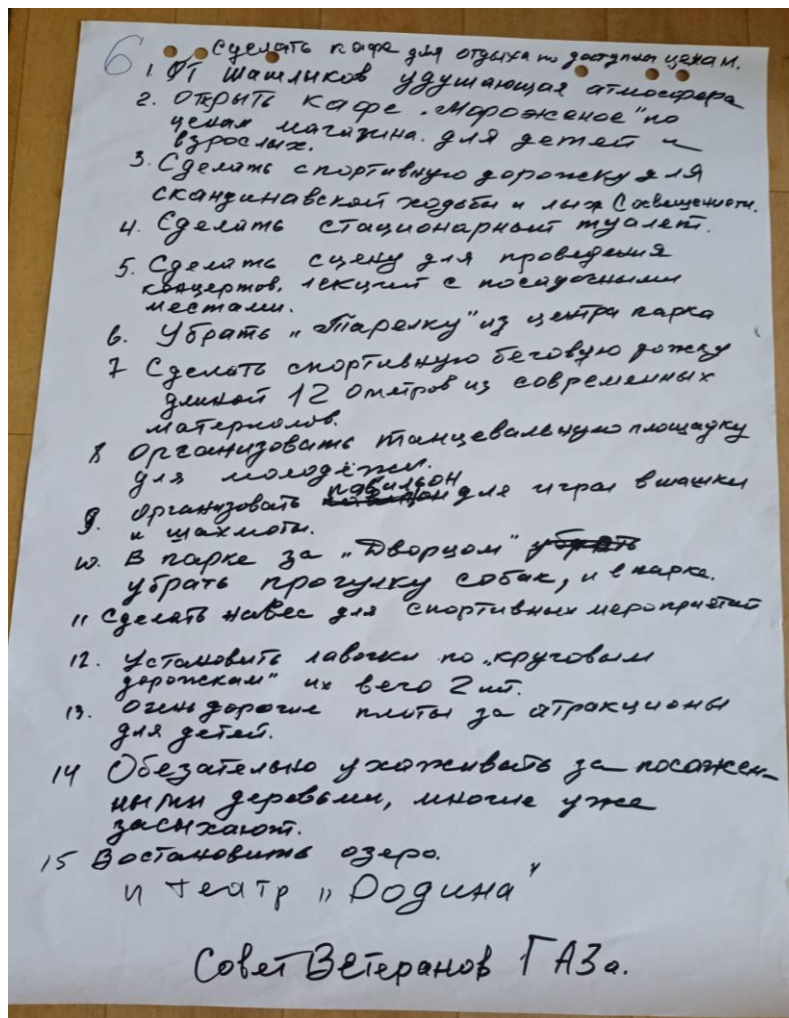 6
Сделать кафе для отдыха по доступным ценам.
1. От шашлыков удушающая атмосфера
2. Открыть кафе „Мороженое" по
ценам магазина. для детей и
взрослых.
3. Сделать спортивную дорожку для
скандинавской ходьбы и лыж (освещением.
4. Сделать стационарный туалет.
5. Сделать сцену для проведения
концертов, лекций с посадочными
местами.
6. Убрать „Тарелку" из центра парка
7 Сделать спортивную беговую дожку
длиной 120метров из современных
материалов.
8 Организовать танцевальную площадку
для молодёжи.
9. Организовать павильон для игры в шашки
и шахматы.
10. В парке за „Дворцом"
убрать прогулку собак, и в парке.
11 Сделать навес для спортивных мероприятий
12. Установить лавочки по „круговым
дорожкам" их всего 2 шт.
13. Очень дорогие платы за атракционы
для детей.
14 Обезательно ухаживать за посажен-
ными деревьями, многие уже
засыхают.
15 Востановить озеро.
и театр „Родина"
Совет Ветеранов ГАЗа.